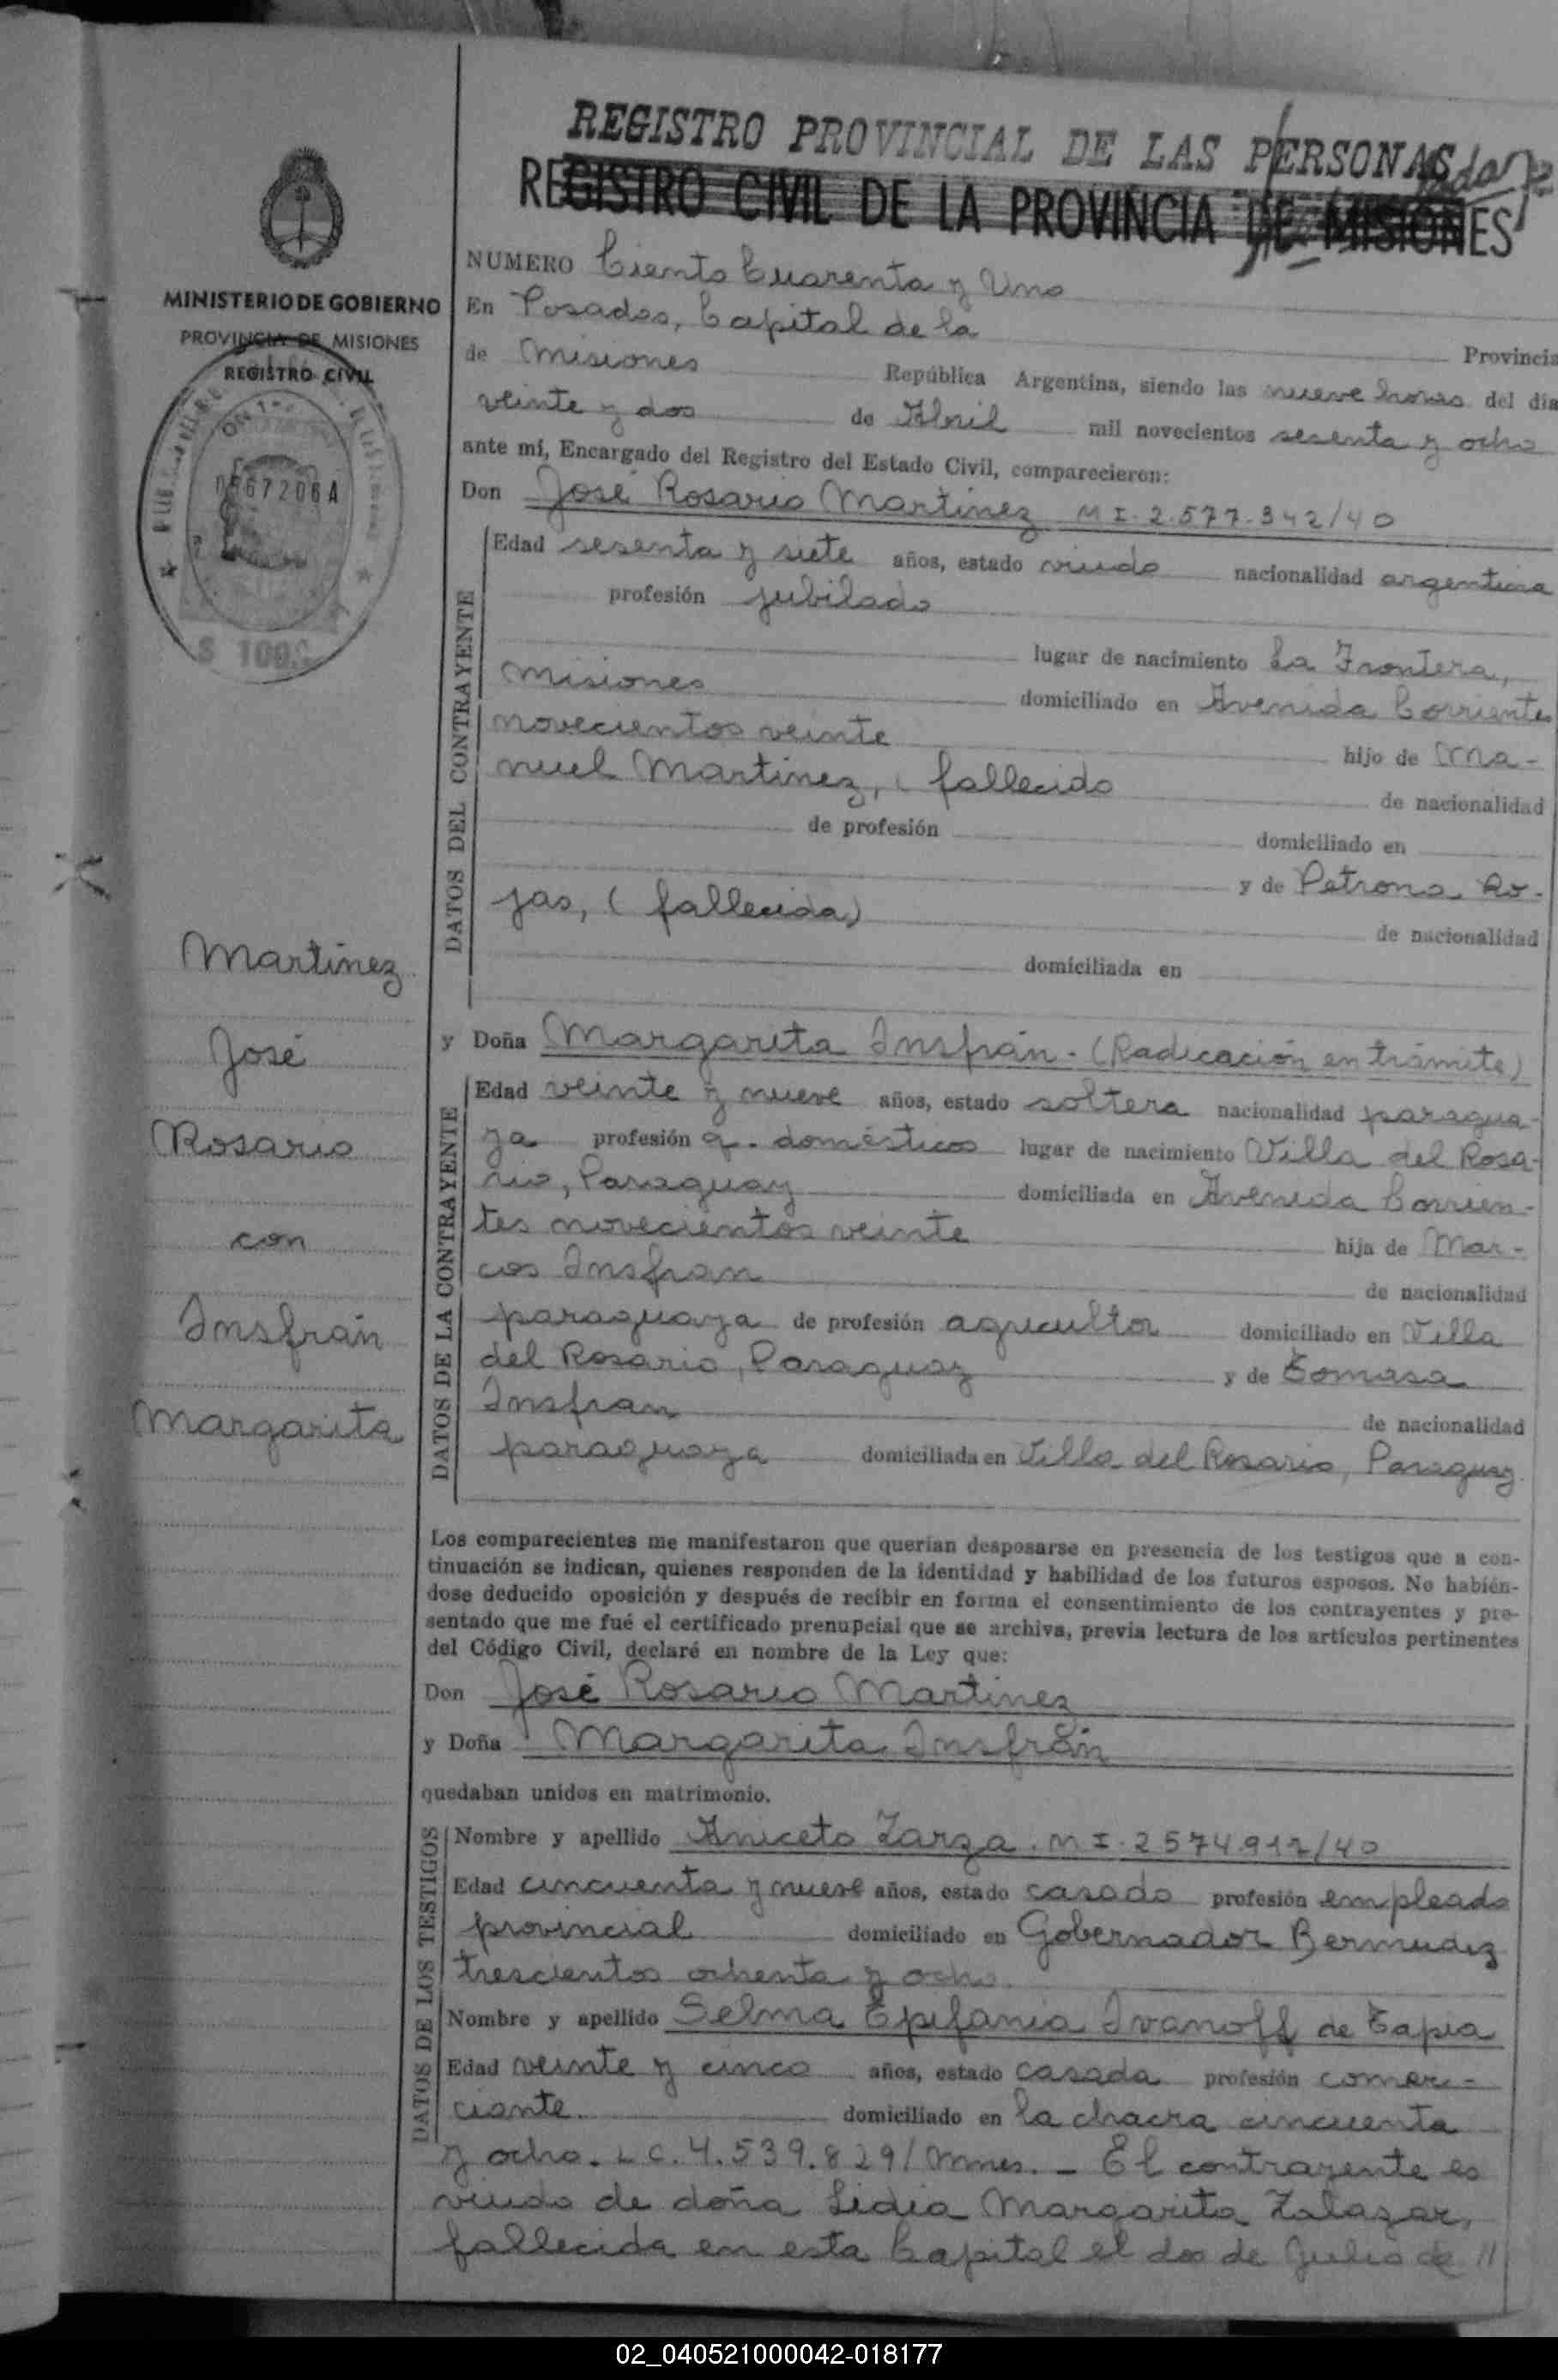 REGISTRO PROVINCIAL DE LAS PERSONAS
REGISTRO CIVIL DE LA PROVINCIA DE MISIONES
MINISTERIO DE GOBIERNO
PROVINCIA DE MISIONES
REGISTRO CIVIL
67206A
$ 100
Martinez
José
Rosario
con
Insfrán
Margarita
NUMERO Ciento Cuarenta y Uno
En Posadas, Capital de la Provincia
de Misiones República Argentina, siendo las nueve horas del día
veinte y dos de Abril mil novecientos sesenta y ocho
ante mí, Encargado del Registro del Estado Civil, comparecieron:
Don José Rosario Martinez M I. 2.577.342/40
DATOS DEL CONTRAYENTE
Edad sesenta y siete años, estado viudo nacionalidad argentina
profesión jubilado
lugar de nacimiento La Frontera,
Misiones domiciliado en Avenida Corrientes
novecientos veinte hijo de Ma-
nuel Martinez, ( fallecido de nacionalidad
de profesión domiciliado en
y de Petrona Ro-
jas, ( fallecida) de nacionalidad
domiciliada en
y Doña Margarita Insfrán - (Radicación en trámite)
DATOS DE LA CONTRAYENTE
Edad veinte y nueve años, estado soltera nacionalidad paragua-
ya profesión q. domésticos lugar de nacimiento Villa del Rosa-
rio, Paraguay domiciliada en Avenida Corrien-
tes novecientos veinte hija de Mar-
cos Insfran de nacionalidad
paraguaya de profesión agricultor domiciliado en Villa
del Rosario, Paraguay y de Tomasa
Insfran de nacionalidad
paraguaya domiciliada en Villa del Rosario, Paraguay.
Los comparecientes me manifestaron que querían desposarse en presencia de los testigos que a con-
tinuación se indican, quienes responden de la identidad y habilidad de los futuros esposos. No habién-
dose deducido oposición y después de recibir en forma el consentimiento de los contrayentes y pre-
sentado que me fué el certificado prenupcial que se archiva, previa lectura de los artículos pertinentes
del Código Civil, declaré en nombre de la Ley que:
Don José Rosario Martinez
y Doña Margarita Insfrán
quedaban unidos en matrimonio.
DATOS DE LOS TESTIGOS
Nombre y apellido Aniceto Zarza. M I. 2574.912/40
Edad cincuenta y nueve años, estado casado profesión empleado
provincial domiciliado en Gobernador Bermudez
trescientos ochenta y ocho.
Nombre y apellido Selma Epifania Ivanoff de Tapia
Edad veinte y cinco años, estado casada profesión comer-
ciante. domiciliado en la chacra cincuenta
y ocho. L C. 4.539.829/Mnes. - El contrayente es
viudo de doña Lidia Margarita Zalazar,
fallecida en esta Capital el dos de Julio de //
02_040521000042-018177